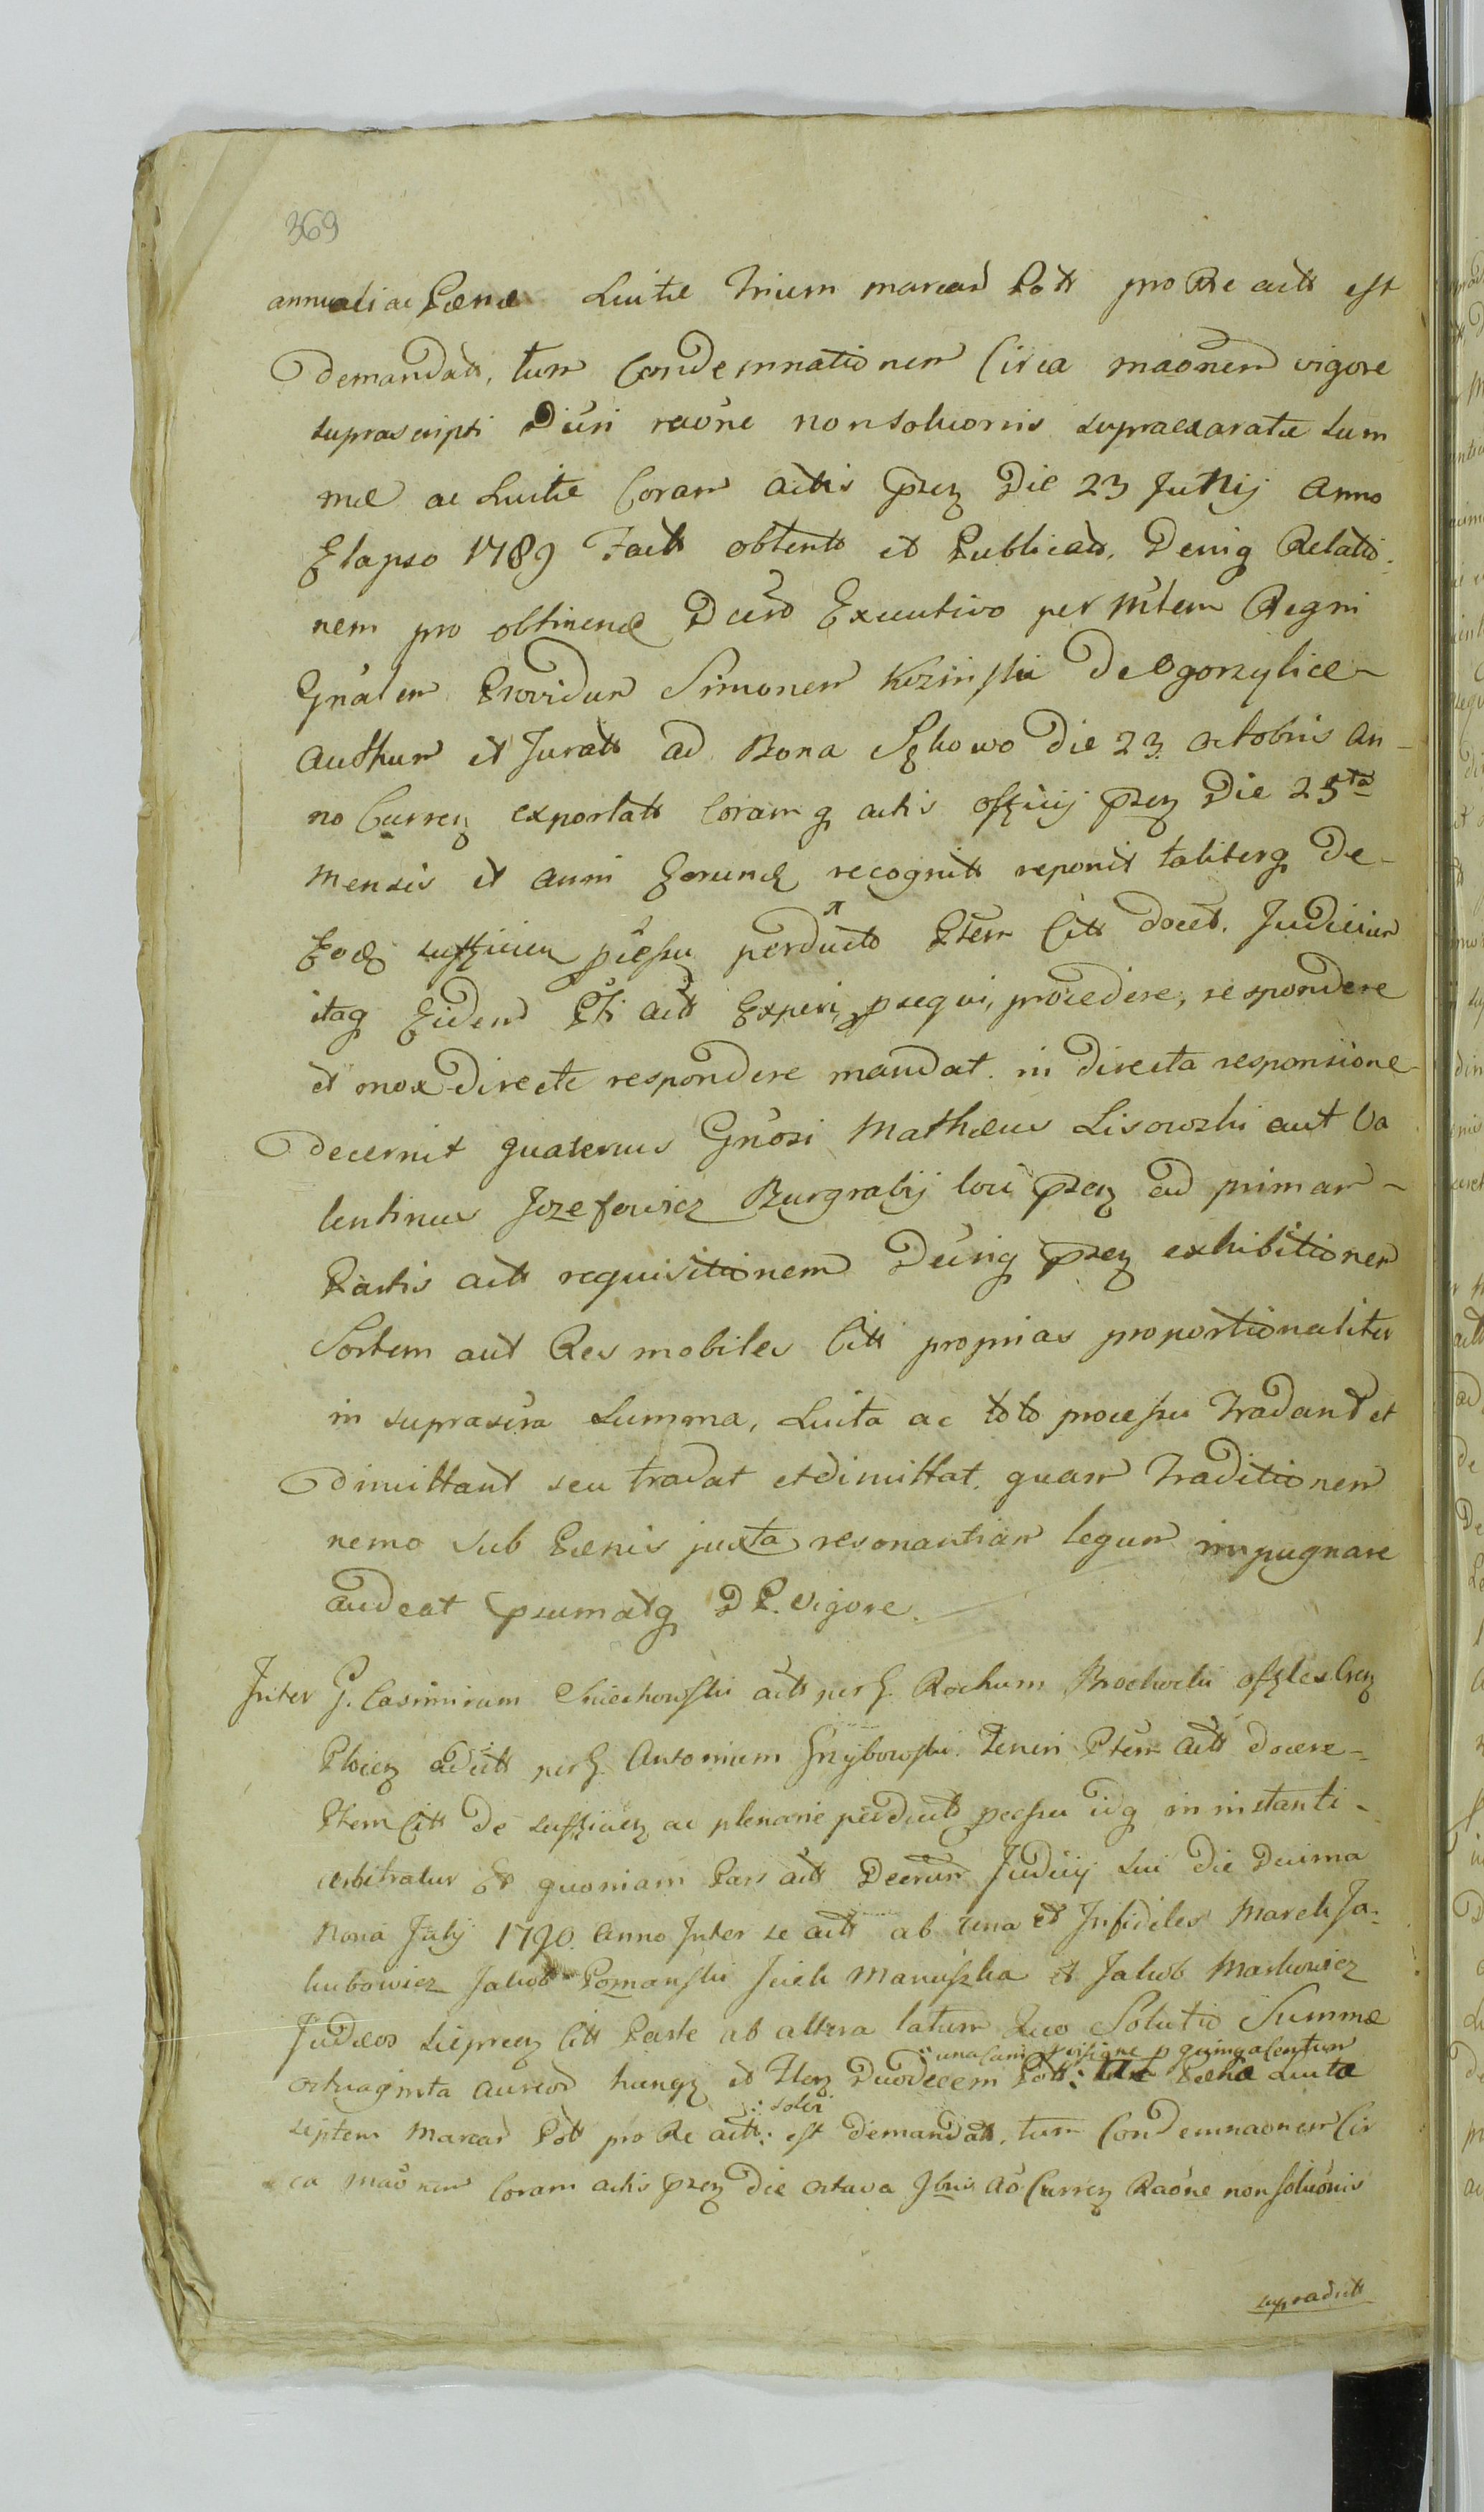 369
annuali ac Pœna Luitæ trium marcar Pott pro Re actt est
Demandatt, tum Condemnationem Circa maõnem vigore
suprascripti Dĩui raõne non soluõnis supraexaratæ Sum
mæ ac Luitæ Coram actis prez Die 23 Junij Anno
Elapso 1789 Factt obtentt et Publicatt, Deniq Relatio-
nem pro obtinend Dcuro Executivo per Mlem Regni
Gnalem Providum Simonem Kozinski De Ogorzylice
Authum et Juratt ad Bona Sękowo Die 23 octobris an-
no Currez exportatt Coramq actis officij prez Die 25ta
mensis et anni Eorund recognitt reponit taliterq De-
Eod sufficien pcessu perducto Ptem Citt docet. Judicium
itaq Eidem Pti actt Experiri, psequi, procedere, respondere
et mox directe respondere mandat. in directa responsione
decernit quatenus Gnosi Mathæus Lisowski aut Va
lentinus Jozefowicz Burgrabij loci prez ad primam
Partis actt requisitionem Dcuriq prez exhibitionem
Sortem aut Res mobiles Citt proprias proportionaliter
in suprascra Summa, Luita ac toto processu Tradant et
dimittant seu tradat et dimittat. quam Traditionem
nemo sub Pœnis juxta resonantiam legum impugnare
audeat psumatq D P. vigore.
Inter G. Casimirum Sniechowski actt per G. Rochum Brochocki offlles Crez
Plocez adcitt per G. Antonium Grzybowski. Teneri Ptem actt docere
Ptem Citt De sufficien ac plenarie perducto pcessu idq in instanti
arbitratur Et quoniam Pars actt Decretum Judicij Sui Die Decima
Nona Julij 1790. Anno Inter se actt ab una et Infideles Marek Ja-
kubowicz Jakob Poznanski Jcick Manuszka et Jakob Markowicz
Judæos Sieprcez Citt Parte ab altera latum Quo Solutio Summæ
:una cum pvisione p quinq a Centum
octuaginta aureor hung et Flor Duodecem Pott: Pœna Luita
: solvi
septem Marcar Pott pro Re actt: est demandatt, tum Condemnaonem Cir
ca maõnem Coram actis prez Die octava 9bris Aõ Currez Raõne non soluõnis
supradictt